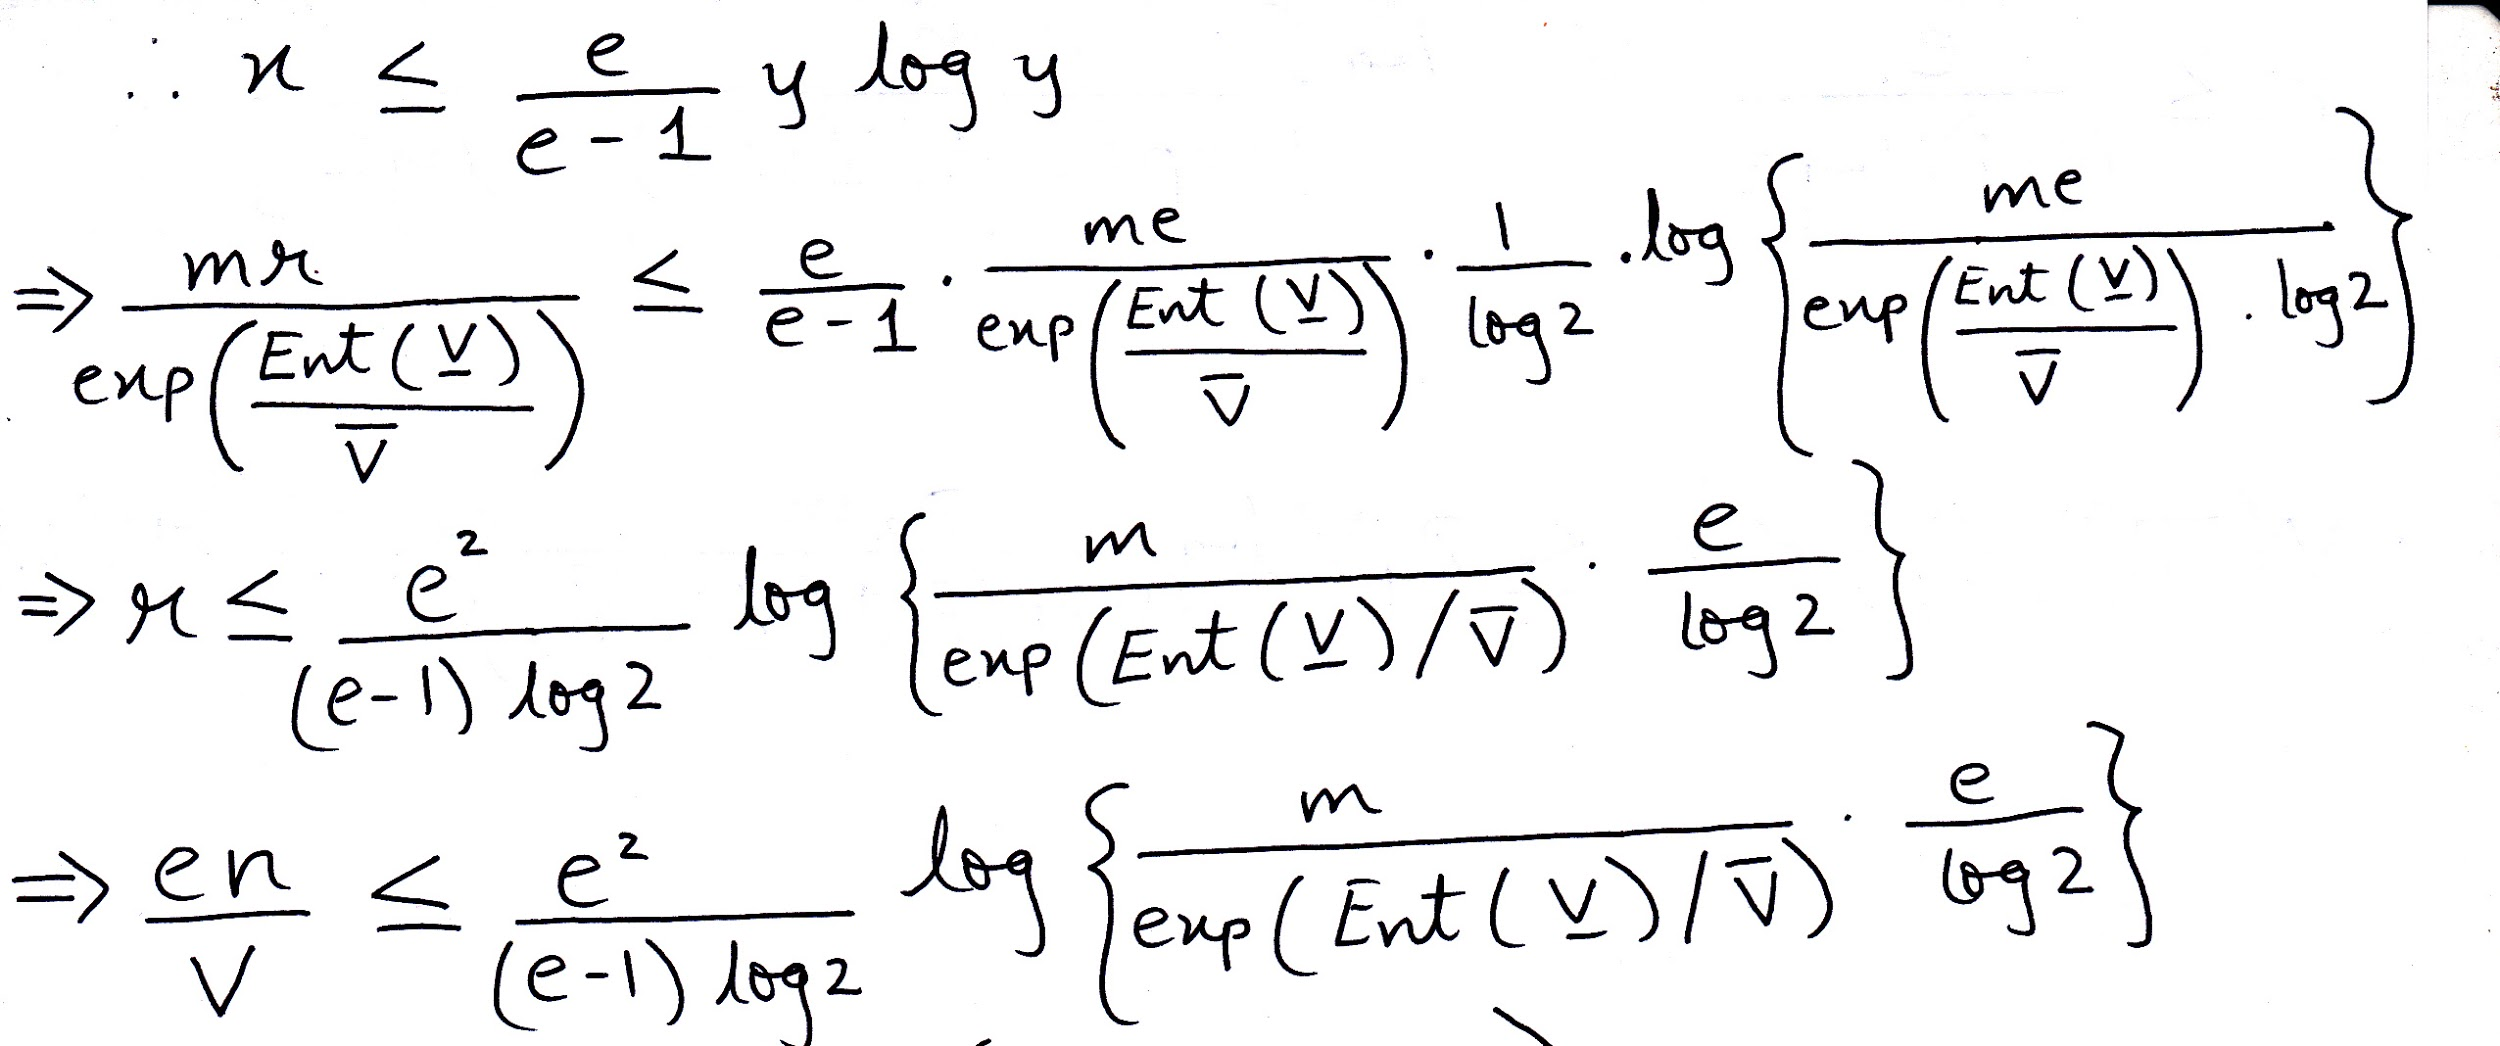 ∴ x ≤ \frac{e}{e-1} y log y
⇒ \frac{mr}{exp(\frac{Ent(\underline{V})}{\overline{V}})} ≤ \frac{e}{e-1} · \frac{me}{exp(\frac{Ent(\underline{V})}{\overline{V}})} · \frac{1}{log 2} · log{\frac{me}{exp(\frac{Ent(\underline{V})}{\overline{V}}) · log 2}}
⇒ r ≤ \frac{e^2}{(e-1) log 2} log{\frac{m}{exp(Ent(\underline{V})/\overline{V})} · \frac{e}{log 2}}
⇒ \frac{en}{V} ≤ \frac{e^2}{(e-1) log 2} log{\frac{m}{exp(Ent(\underline{V})/\overline{V})} · \frac{e}{log 2}}